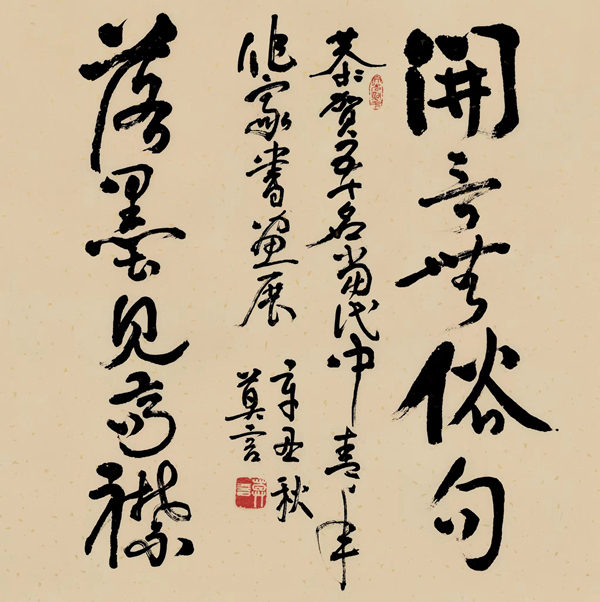 開言無俗句
恭賀五十名當代中青年
作家書畫展
辛丑秋
莫言
莫言
落墨見高襟